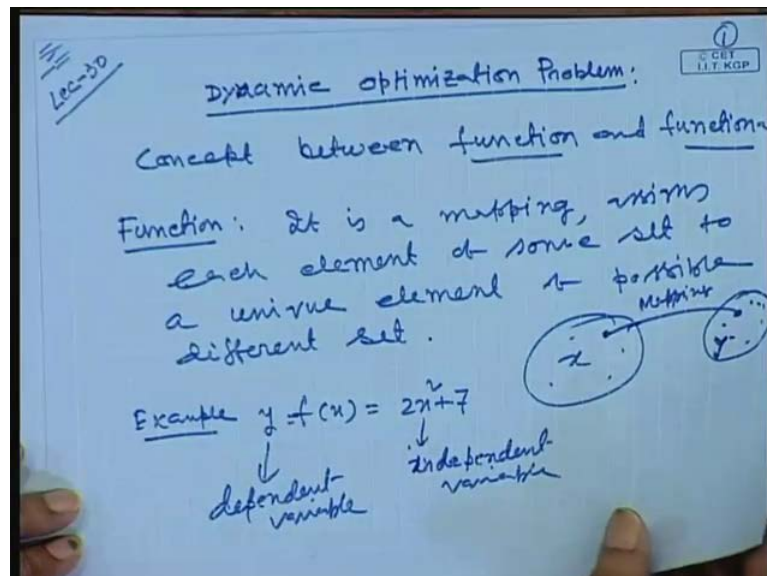 Lec-30
①
© CET
I.I.T. KGP
Dynamic optimization Problem:
Concept between function and function
Function: It is a mapping, assigns
each element of some set to
a unique element of possible
different set.
Mapping
x
y
Example y = f(x) = 2x²+7
dependent variable
independent variable